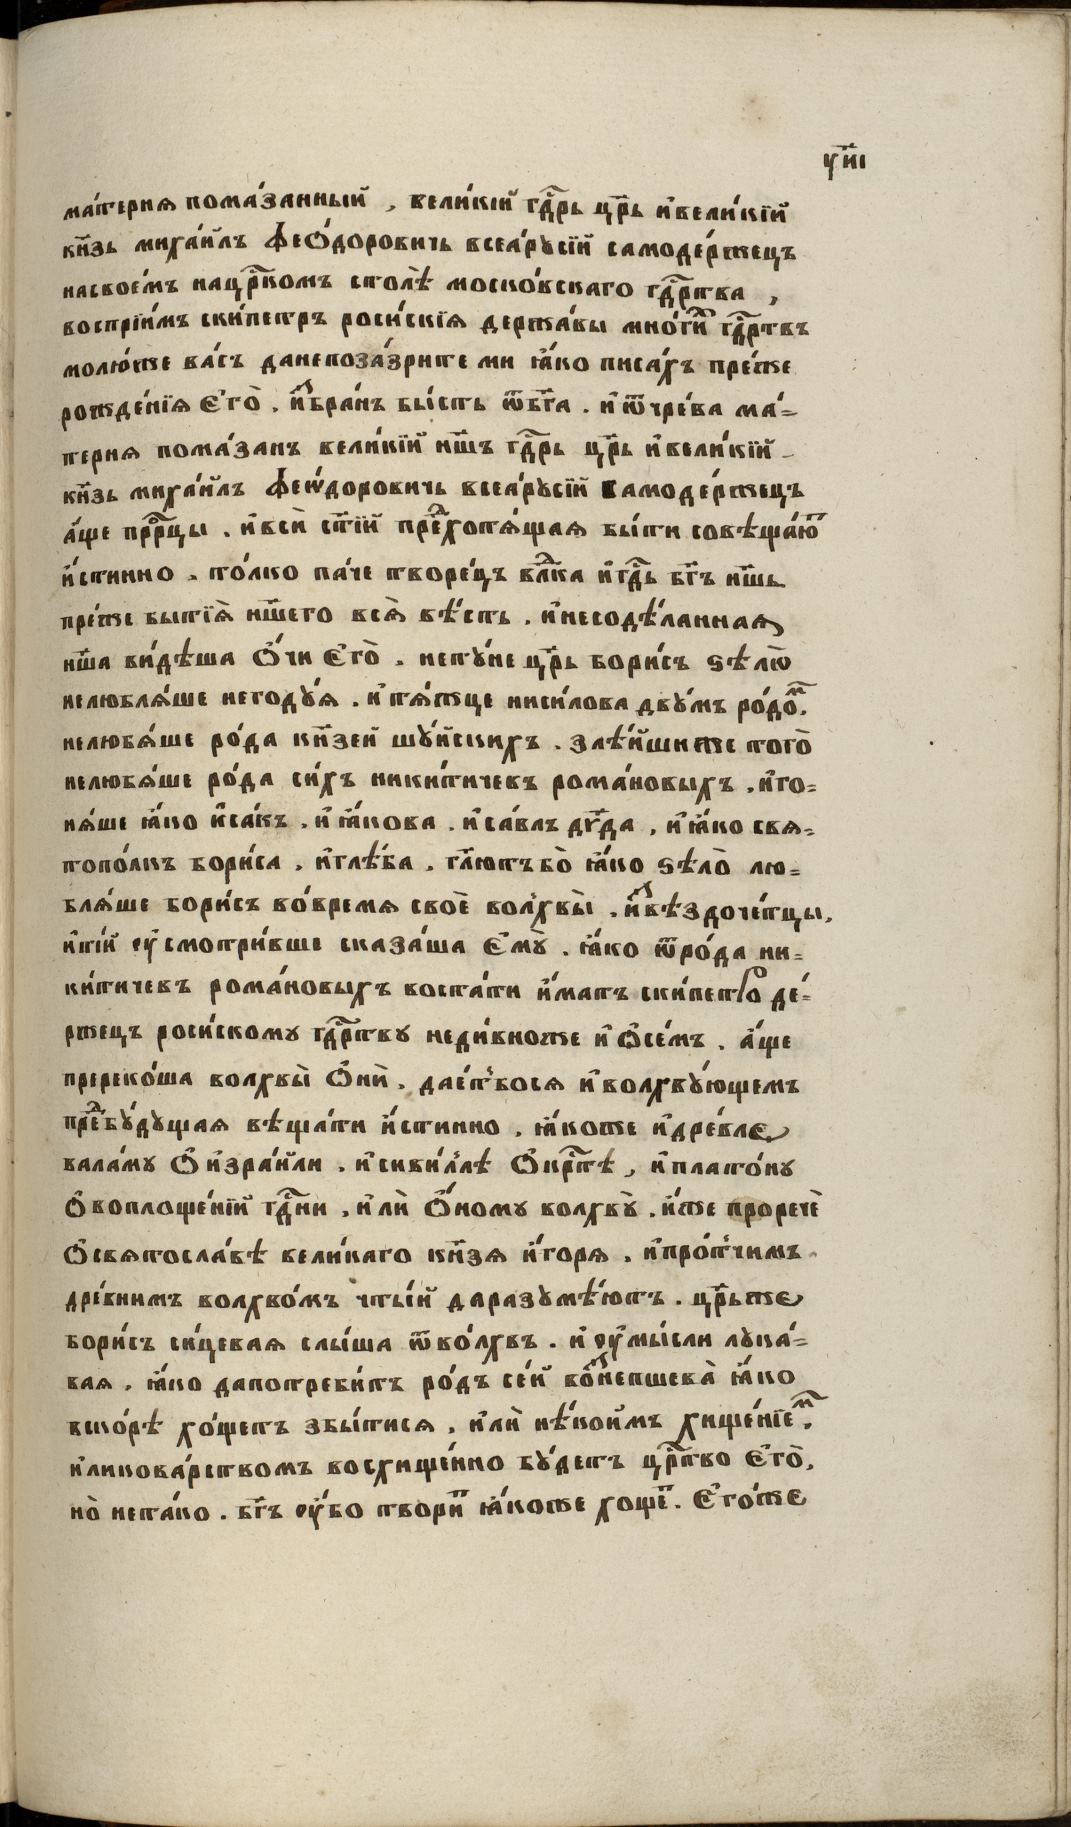 у҃и҃і
ма́терня пома́занный , вели́кїй гд҇рь цр҃ь и҆вели́кїй
кн҃зь миха́и҆лъ ѳео́дорович̾ь всеа̀рꙋсїи самоде́ржецъ
насвое́мъ нацр҇комъ столѣ̀ моско́вскаго гд҇рства ,
воспрїи́мъ ски́петръ роси́йскїя держа́вы мно́гиⷯ гд҇рствъ
молю́же ва́съ данепоза́зрите ми ꙗ҆́ко писа́хъ пре́же
рожде́нїя є҆гѡ̀ . и҆ⷥбра́нъ бы́сть ѿбг҃а . и҆ѿчре́ва ма́-
терня пома́занъ вели́кїй нш҃ъ гд҇рь цр҃ь и҆вели́кїй
кн҃зь миха́и҆лъ ѳеѡ́дорович̾ь всеа̀рꙋсїй самоде́ржецъ
а҆́ще прⷪ҇рцы . и҆всѝ ст҃їй преⷣхотѧ́щая бы́ти совѣща́юⷮ
и҆́стинно . то́лко па́че творе́цъ влⷣка и҆гд҇ь бг҃ъ нш҃ь
пре́же бытїѧ̀ нш҃его всѧ̀ вѣ́сть . и҆несодѣ́ланная
нш҃а ви́дѣша ѻ҆́чи є҆гѡ̀ . нетꙋ́не цр҃ь бори́съ ѕѣлѡ̀
нелюблѧ́ше негодꙋ́я . и҆тѧ́жце нисилова двꙋ́мъ ро́доⷨ .
нелюбѧ́ше ро́да кн҃зей шꙋ́йскихъ . злѣ́йшиже того̀
нелюбѧ́ше ро́да си́хъ ники́тичевъ рома́новыхъ , и҆го-
нѧ́ше ꙗ҆́ко и҆са́къ . и҆ꙗ҆́кова . и҆са́влъ дв҃да , и҆ꙗ҆́ко свя-
топо́лкъ бори́са , и҆глѣ́ба , гл҃ютъбо̀ ꙗ҆́ко ѕѣло̀ лю-
блѧ́ше бори́съ во́время своѐ волхвы̀ , и҆ⷥвѣздоче́тцы ,
и҆ті́й ᲂу҆смотри́вше сказа́ша є҆мꙋ̀ . ꙗ҆́ко ѿро́да ни-
ки́тичевъ рома́новыхъ воста́ти и҆́матъ ски́петро де́-
ржецъ роси́йскомꙋ гд҇рствꙋ неди́вноже и҆ѻ҆се́мъ . а҆́ще
пререко́ша волхвы̀ ѻ҆нѝ . дае́т̾бося и҆волхвꙋ́ющемъ
преⷣбꙋ́дꙋщая вѣща́ти и҆́стинно , ꙗ҆́коже и҆дре́вле
вала́мꙋ ѻ҆и҆зра́или . и҆сиви́ллѣ ѻ҆кр҇тѣ , и҆плато́нꙋ
ѻ҆воплоще́нїй гд҇ни , и҆лѝ ѻ҆́номꙋ волхвꙋ̀ . и҆́же проречѐ
ѻ҆святосла́вѣ вели́каго кн҃зя и҆́горя . и҆про́т̾чимъ
дре́внимъ волхво́мъ чты́й даразꙋмѣ́ютъ . цр҃ьже
бори́съ си́цевая слы́ша ѿво́лхвъ . и҆ ᲂу҆мы́сли лꙋка́-
вая . ꙗ҆́ко дапотреби́тъ ро́дъ се́й воⷥнепщева̀ ꙗ҆́ко
вско́рѣ хо́щетъ збы́тися , и҆лѝ нѣ́коимъ хище́нїеⷨ .
и҆ликова́рствомъ восхище́нно бꙋ́детъ цр҇тво є҆гѡ̀ ,
но̀ нета́ко . бг҃ъ ᲂу҆́бо твориⷮ ꙗ҆́коже хощеⷮ . є҆го́же